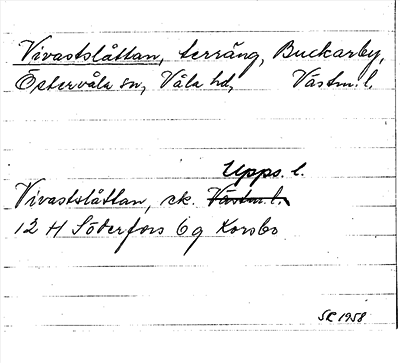 Vivastslåttan, terräng, Buckarby,
Östervåla sn, Våla hd, Västm. l.
Upps. l.
Vivastslåttan, ek. Västm. l.
12 H Söderfors 6 g Korsbo
SR 1958